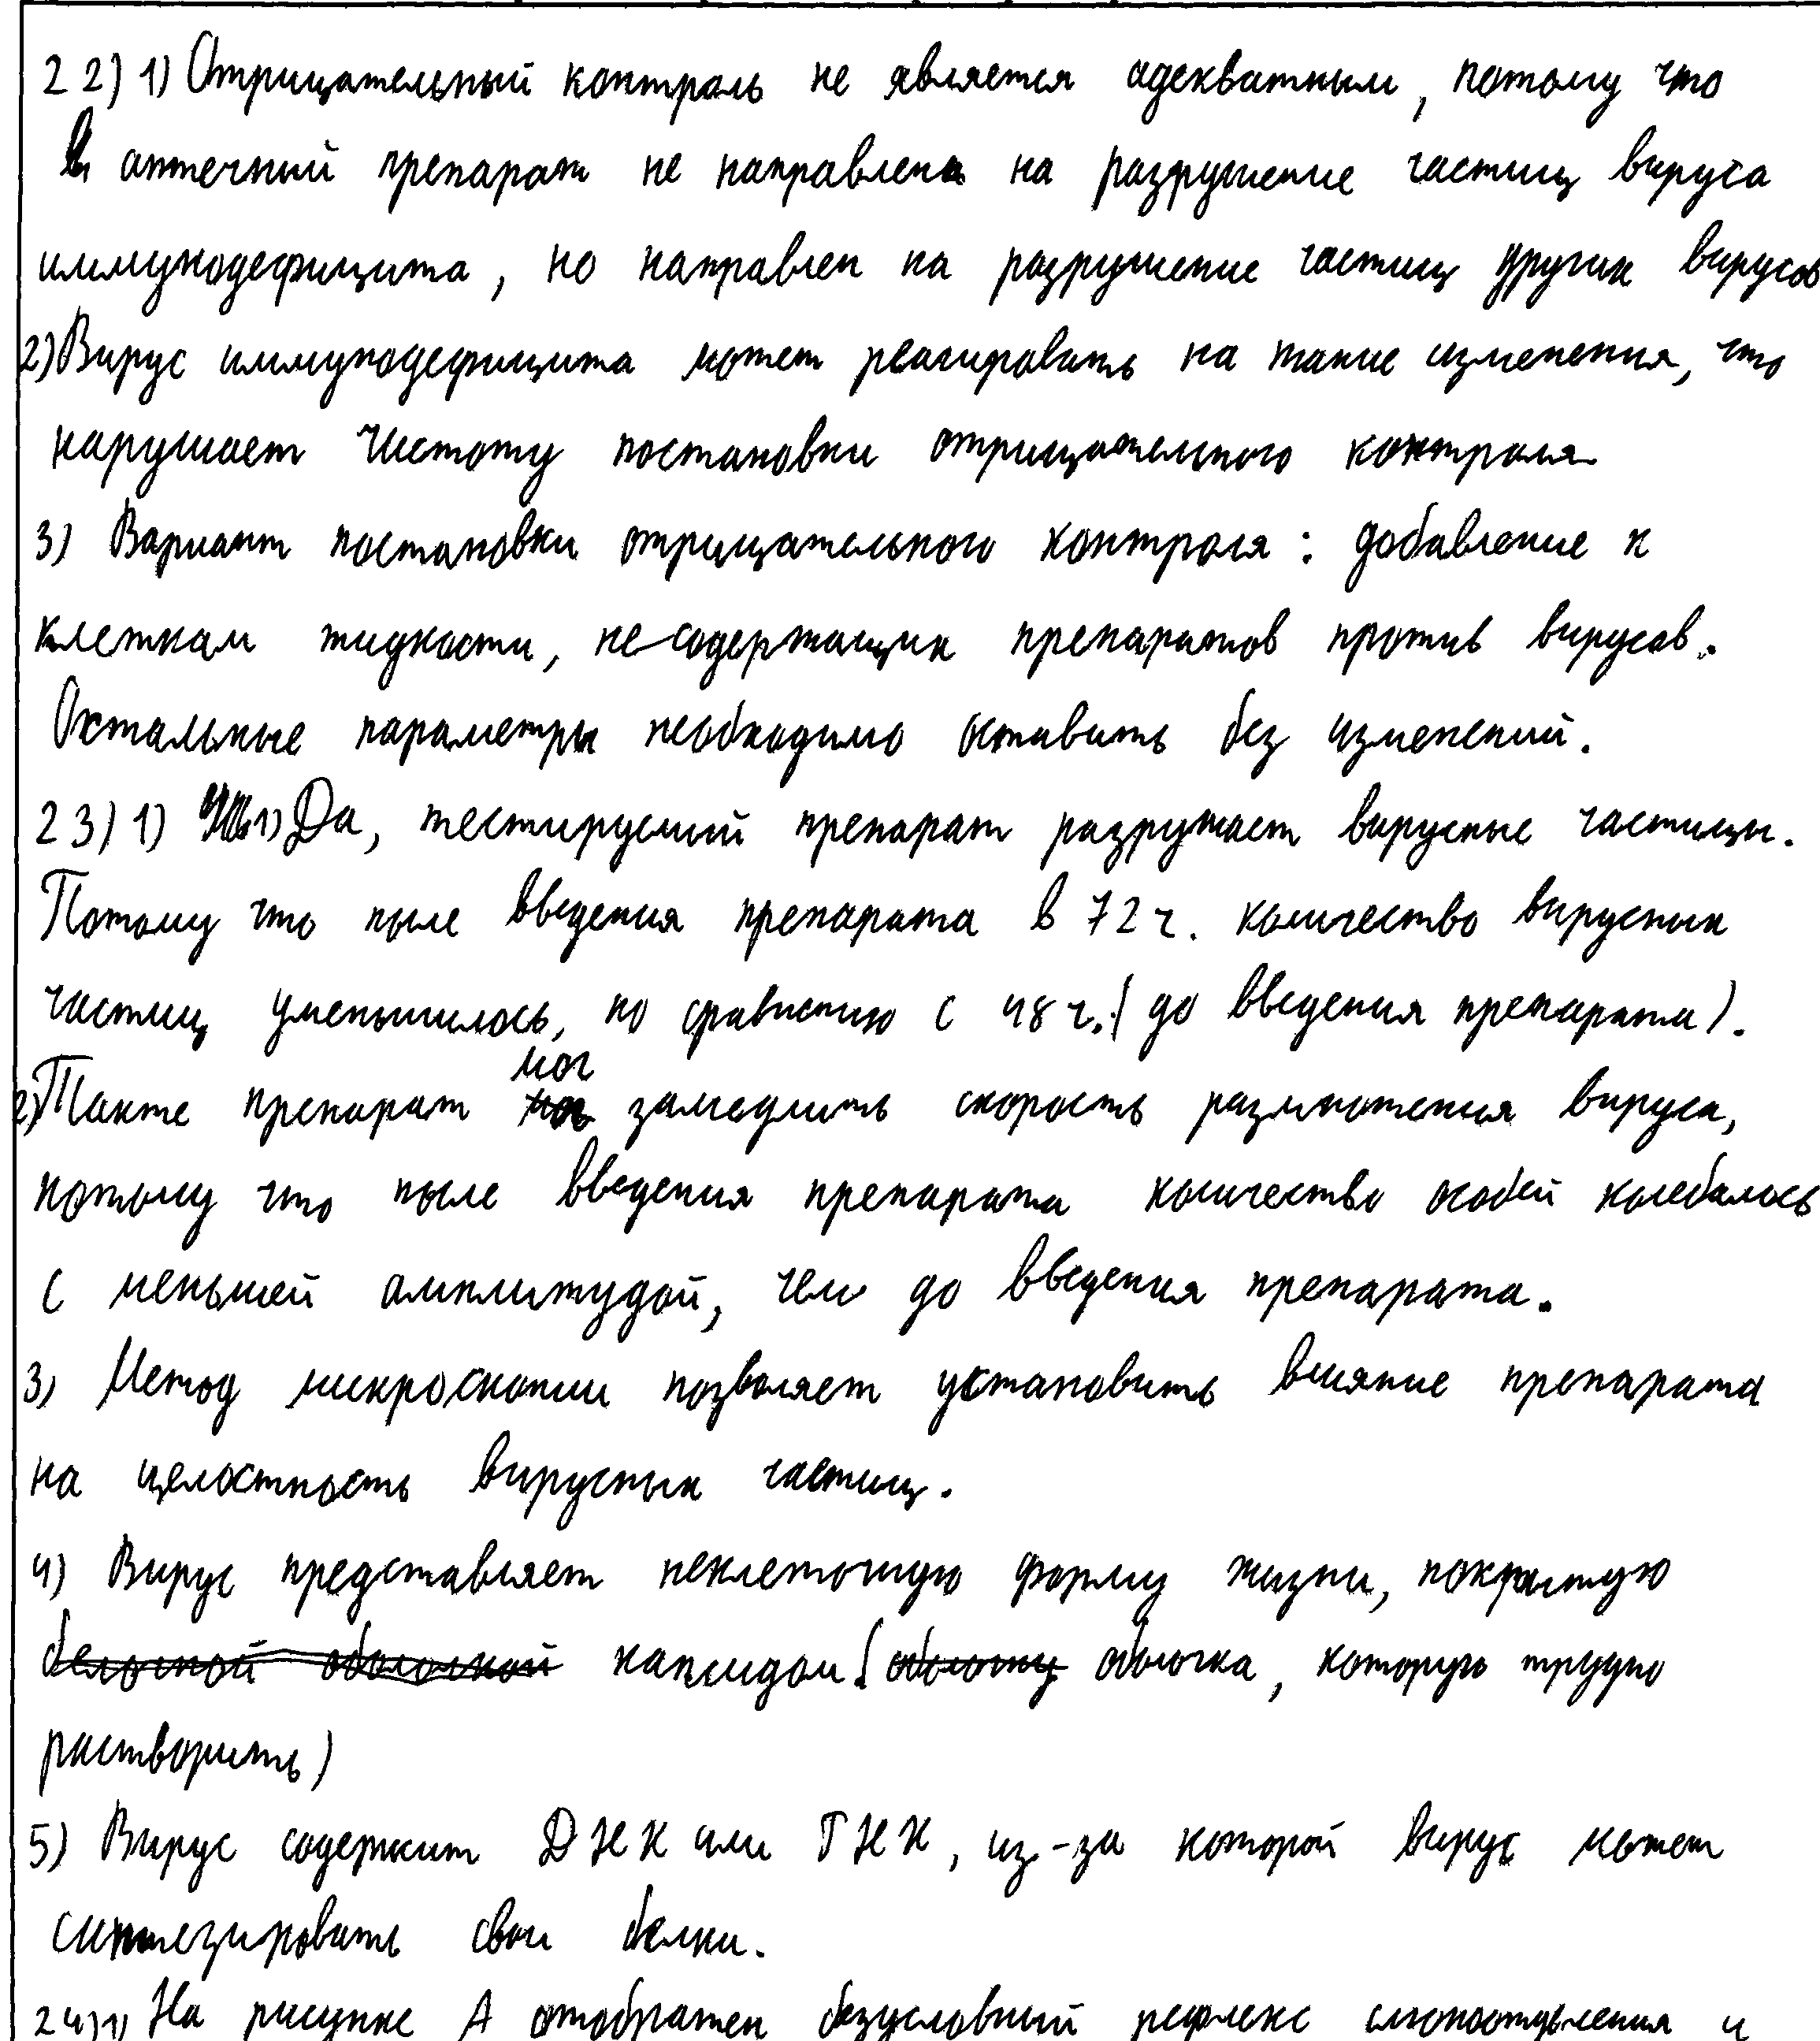 22) 1) Отрицательный контроль не является адекватным, потому что
аптечный препарат не направлена на разрушение частиц вируса
иммунодефицита, но направлен на разрушение частиц других вирусов
2) Вирус иммунодефицита может реагировать на такие изменения, что
нарушает чистоту постановки отрицательного контроля
3) Вариант постановки отрицательного контроля: добавление к
клеткам жидкости, не содержащих препаратов против вирусов.
Остальные параметры необходимо оставить без изменений.
23) 1) Да, тестируемый препарат разружает вирусные частицы.
Потому что после введения препарата в 72 ч. количество вирусных
частиц уменьшилось, по сравнению с 48 ч. (до введения препарата).
2) Также препарат мог замедлить скорость размножения вируса,
потому что после введения препарата количество особей колебалось
с меньшей амплитудой, чем до введения препарата.
3) Метод микроскопии позволяет установить влияние препарата
на целостность вирусных частиц.
4) Вирус представляет неклеточную форму жизни, покрытую
белочной оболочкой капсидом (оболочку оболочка, которую трудно
растворить)
5) Вирус содержит ДНК или РНК, из-за которой вирус может
синтезировать свои белки.
24) 1) На рисунке А отображен безусловный рефлекс слюноотделения и